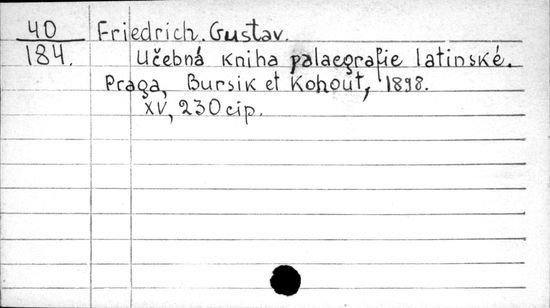 40 Friedrich. Gustav.
184. Učebná kniha palaegrafie latinské.
Praga, Bursik et Kohout, 1898.
XV, 230 cip.